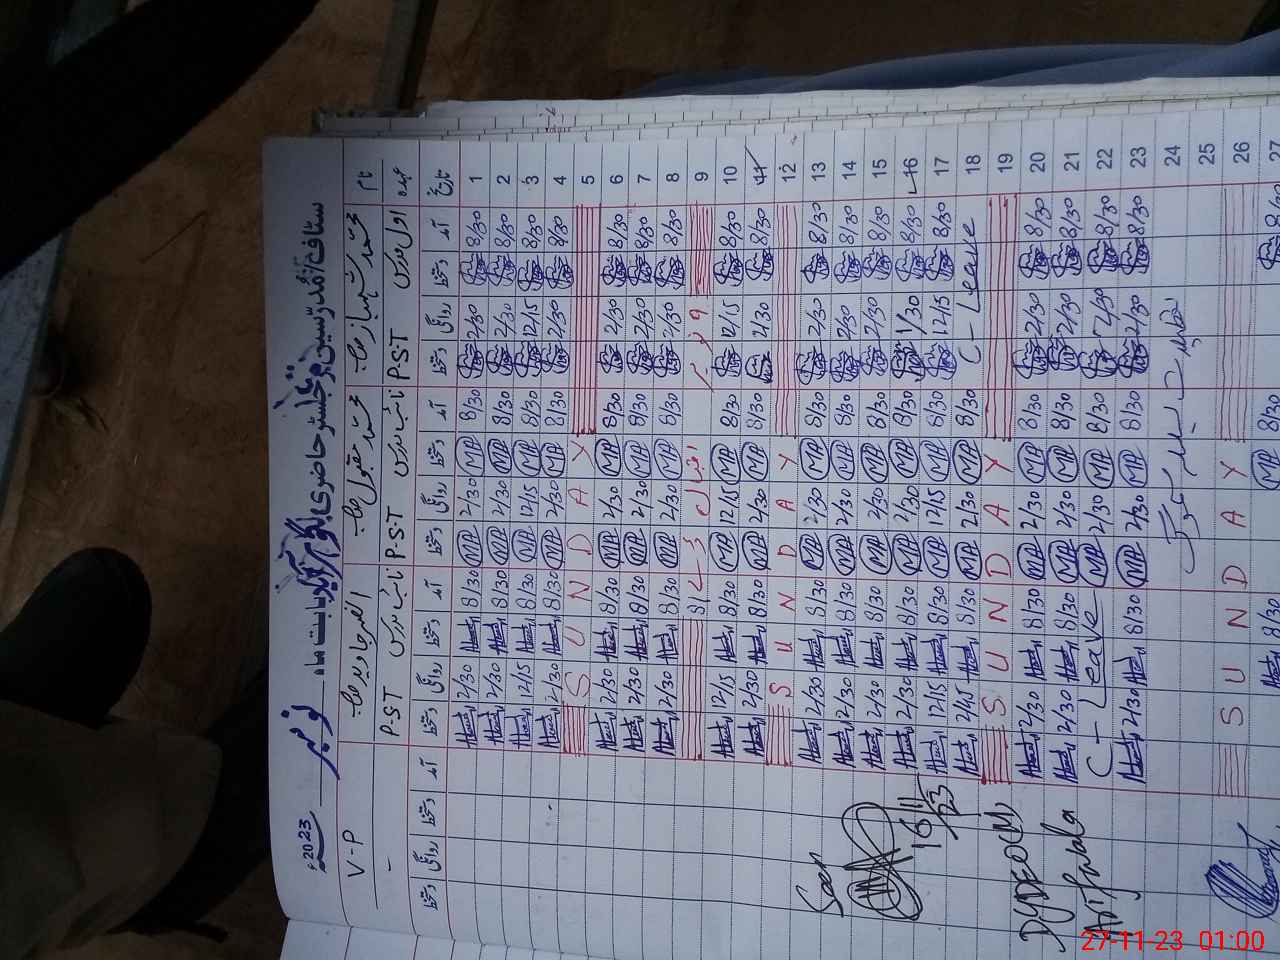 سٹاف آمدورفت و حاضری بابت ماہ نومبر 2023ء
نام محمد شہباز صاحب محمد مقبول صاحب V-P
عہدہ اول مدرس P.S.T نائب مدرس P.S.T نائب مدرس P.S.T -
تاریخ آمد دستخط روانگی دستخط آمد دستخط روانگی دستخط آمد دستخط روانگی دستخط آمد دستخط روانگی دستخط
1 8/30 2/30 8/30 MA 2/30 MA 8/30 2/30
2 8/30 2/30 8/30 MA 2/30 MA 8/30 2/30
3 8/30 12/15 8/30 MA 12/15 MA 8/30 12/15
4 8/30 2/30 8/30 MA 2/30 MA 8/30 2/30
5 SUNDAY
6 8/30 2/30 8/30 MA 2/30 MA 8/30 2/30
7 8/30 2/30 8/30 MA 2/30 MA 8/30 2/30
8 8/30 2/30 8/30 MA 2/30 MA 8/30 2/30
9 اقبال ڈے
10 8/30 12/15 8/30 MA 12/15 MA 8/30 12/15
11 8/30 2/30 8/30 MA 2/30 MA 8/30 2/30
12 SUNDAY
13 8/30 2/30 8/30 MA 2/30 MA 8/30 2/30
14 8/30 2/30 8/30 MA 2/30 MA 8/30 2/30
15 8/30 2/30 8/30 MA 2/30 MA 8/30 2/30
16 8/30 1/30 8/30 MA 2/30 MA 8/30 2/30
17 8/30 12/15 8/30 MA 12/15 MA 8/30 12/15
18 C-Leave 8/30 MA 2/30 MA 8/30 2/45
19 SUNDAY
20 8/30 2/30 8/30 MA 2/30 MA 8/30 2/30
21 8/30 2/30 8/30 MA 2/30 MA 8/30 2/30
22 8/30 2/30 8/30 MA 2/30 MA C-Leave
23 8/30 2/30 8/30 MA 2/30 MA 8/30 2/30
24
25
26 SUNDAY
27 8/30 8/30 MA 8/30
Seen
16/11/23
DyDEO(M)
Arifwala
27-11-23 01:00